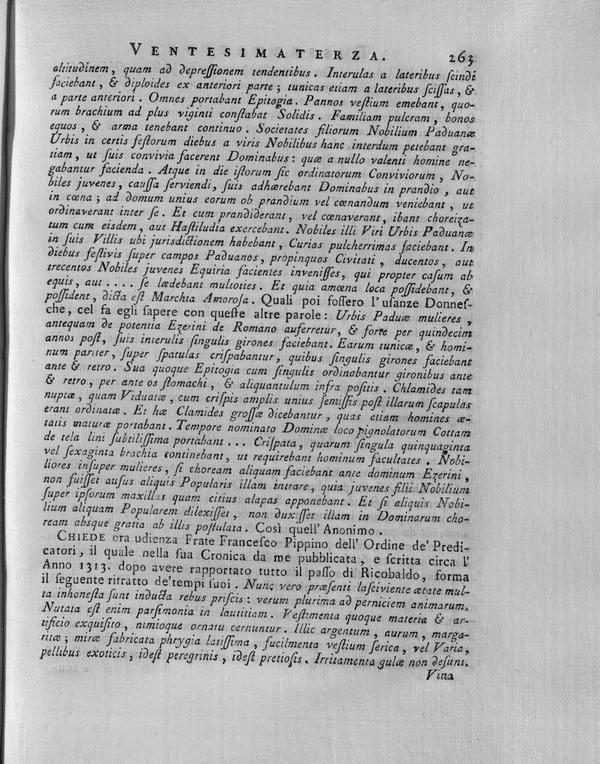 VENTESIMATERZA. 263
altitudinem, quam ad depreſſionem tendentibus. Interulas a lateribus ſcindi
faciebant, & diploides ex anteriori parte; tunicas etiam a lateribus ſciſſas, &
a parte anteriori. Omnes portabant Epitogia. Pannos veſtium emebant, quo-
rum brachium ad plus viginti conſtabat Solidis. Familiam pulcram, bonos
equos, & arma tenebant continuo. Societates filiorum Nobilium Paduanæ
Urbis in certis feſtorum diebus a viris Nobilibus hanc interdum petebant gra-
tiam, ut ſuis convivia facerent Dominabus: quæ a nullo valenti homine ne-
gabantur facienda. Atque in die iſtorum ſic ordinatorum Conviviorum, No-
biles juvenes, cauſſa ſerviendi, ſuis adhærebant Dominabus in prandio, aut
in cœna; ad domum unius eorum ob prandium vel cœnandum veniebant, ut
ordinaverant inter ſe. Et cum prandiderant, vel cœnaverant, ibant choreiza-
tum cum eisdem, aut Haſtiludia exercebant. Nobiles illi Viri Urbis Paduanæ
in ſuis Villis ubi jurisdictionem habebant, Curias pulcherrimas faciebant. In
diebus feſtivis ſuper campos Paduanos, propinquos Civitati, ducentos, aut
trecentos Nobiles juvenes Equiria facientes inveniſſes, qui propter caſum ab
equis, aut .... ſe lædebant multoties. Et quia amœna loca poſſidebant, &
poſſident, dicta eſt Marchia Amoroſa. Quali poi foſſero l'uſanze Donneſ-
che, cel fa egli ſapere con queſte altre parole: Urbis Paduæ mulieres,
antequam de potentia Ezerini de Romano auferretur, & forte per quindecim
annos poſt, ſuis interulis ſingulis girones faciebant. Earum tunicæ, & homi-
num pariter, ſuper ſpatulas criſpabantur, quibus ſingulis girones faciebant
ante & retro. Sua quoque Epitogia cum ſingulis ordinabantur gironibus ante
& retro, per ante os ſtomachi, & aliquantulum infra poſitis. Chlamides tam
nuptæ, quam Viduatæ, cum criſpis amplis unius ſemiſſis poſt illarum ſcapulas
erant ordinatæ. Et hæ Clamides groſſæ dicebantur, quas etiam homines æ-
tatis maturæ portabant. Tempore nominato Dominæ loco pignolatorum Cottam
de tela lini ſubtiliſſima portabant ... Criſpata, quarum ſingula quinquaginta
vel ſexaginta brachia continebant, ut requirebant hominum facultates. Nobi-
liores inſuper mulieres, ſi choream aliquam faciebant ante dominum Ezerini,
non fuiſſet auſus aliquis Popularis illam intrare, quia juvenes filii Nobilium
ſuper ipſorum maxillas quam citius alapas apponebant. Et ſi aliquis Nobi-
lium aliquam Popularem dilexiſſet, non duxiſſet illam in Dominarum cho-
ream absque gratia ab illis poſtulata. Così quell'Anonimo.
CHIEDE ora udienza Frate Franceſco Pippino dell'Ordine de' Predi-
catori, il quale nella ſua Cronica da me pubblicata, e ſcritta circa l'
Anno 1313. dopo avere rapportato tutto il paſſo di Ricobaldo, forma
il ſeguente ritratto de'tempi ſuoi. Nunc vero præſenti laſciviente ætate mul-
ta inhoneſta ſunt inducta rebus priſcis: verum plurima ad perniciem animarum.
Nutata eſt enim parſimonia in lautitiam. Veſtimenta quoque materia & ar-
tificio exquiſito, nimioque ornatu cernuntur. Illic argentum, aurum, marga-
ritæ; miræ fabricata phrygia latiſſima, fucilmenta veſtium ſerica, vel Varia,
pellibus exoticis, ideſt peregrinis, ideſt pretioſis. Irritamenta gulæ non deſunt.
Vina